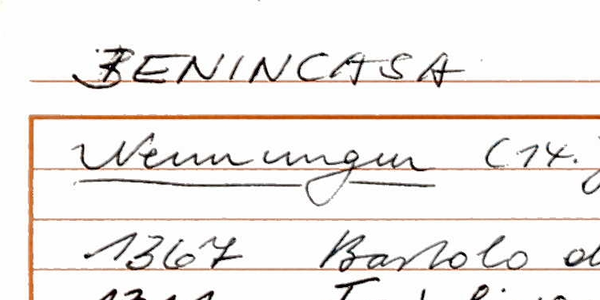 BENINCASA
Nennungen (14.
1367 Bartolo d